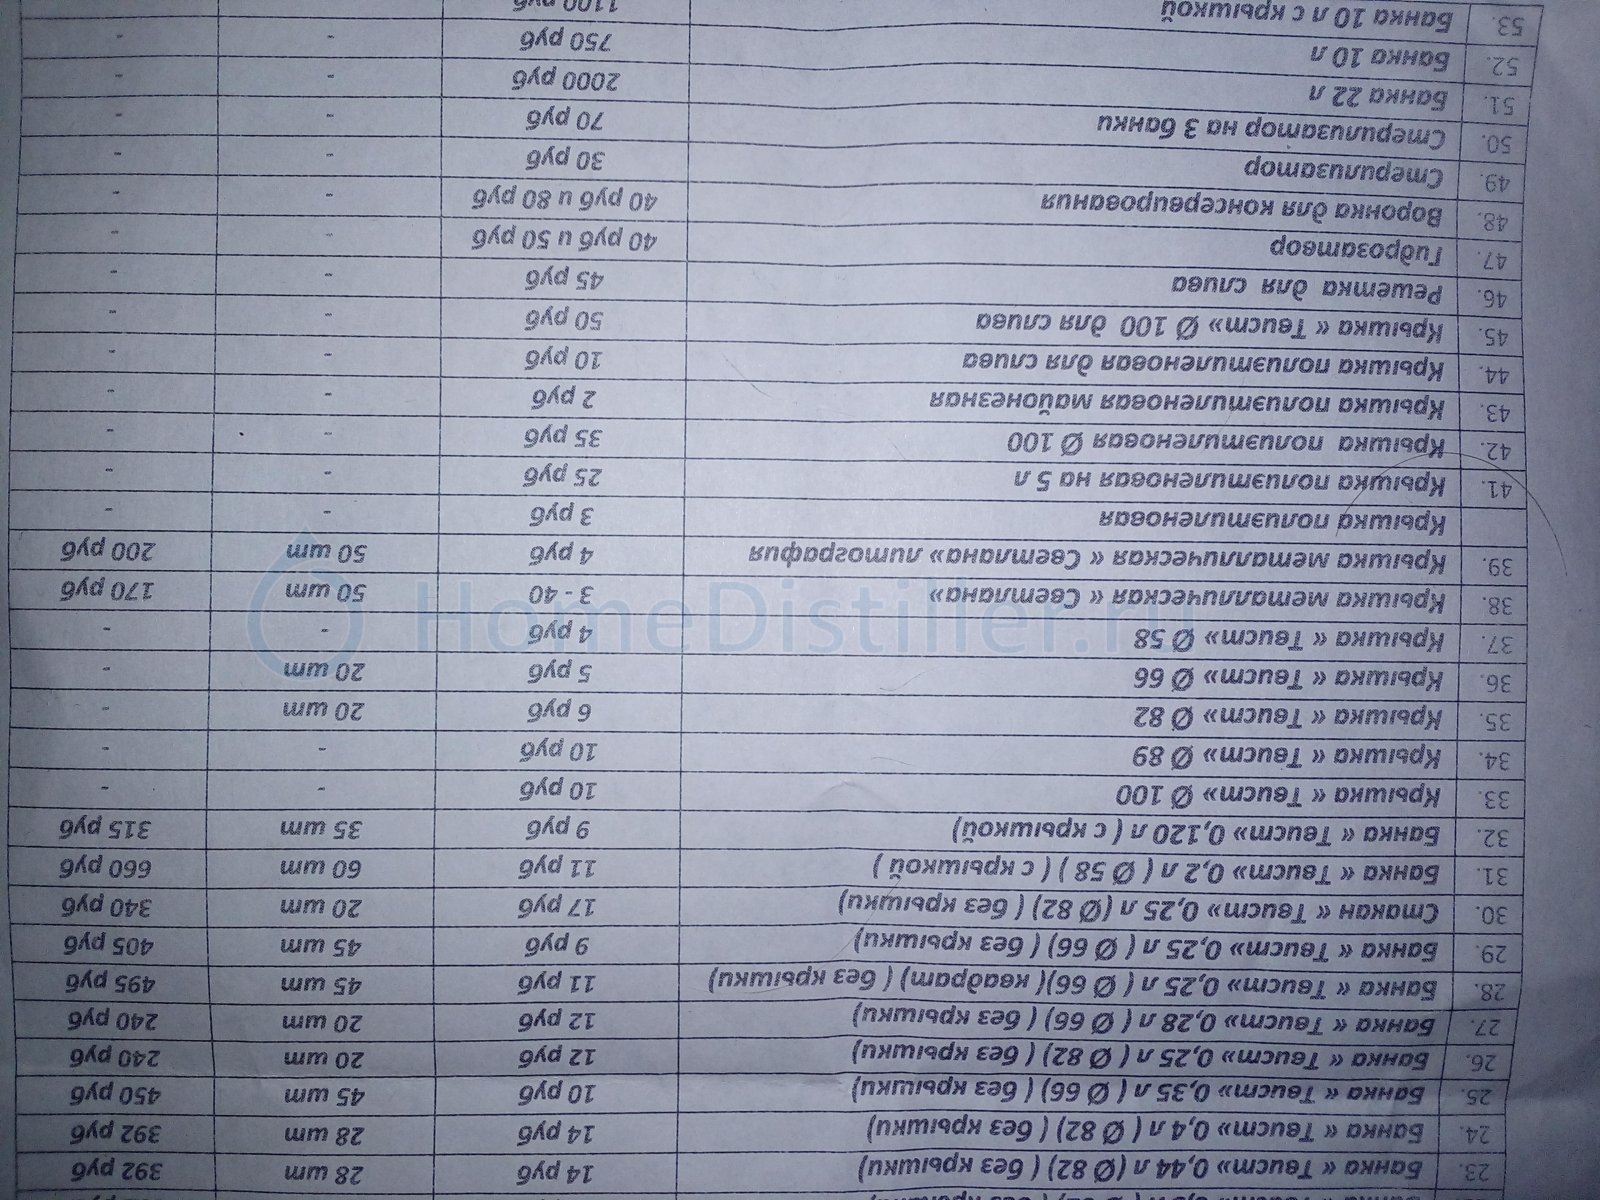 23. Банка « Твист» 0,44 л (Ø 82) ( без крышки) 14 руб 28 шт 392 руб
24. Банка « Твист» 0,4 л ( Ø 82) ( без крышки) 14 руб 28 шт 392 руб
25. Банка « Твист» 0,35 л ( Ø 66) ( без крышки) 10 руб 45 шт 450 руб
26. Банка « Твист» 0,25 л ( Ø 82) ( без крышки) 12 руб 20 шт 240 руб
27. Банка « Твист» 0,28 л ( Ø 66) ( без крышки) 12 руб 20 шт 240 руб
28. Банка « Твист» 0,25 л ( Ø 66)( квадрат) ( без крышки) 11 руб 45 шт 495 руб
29. Банка « Твист» 0,25 л ( Ø 66) ( без крышки) 9 руб 45 шт 405 руб
30. Стакан « Твист» 0,25 л (Ø 82) ( без крышки) 17 руб 20 шт 340 руб
31. Банка « Твист» 0,2 л ( Ø 58 ) ( с крышкой ) 11 руб 60 шт 660 руб
32. Банка « Твист» 0,120 л ( с крышкой) 9 руб 35 шт 315 руб
33. Крышка « Твист» Ø 100 10 руб - -
34. Крышка « Твист» Ø 89 10 руб - -
35. Крышка « Твист» Ø 82 6 руб 20 шт -
36. Крышка « Твист» Ø 66 5 руб 20 шт -
37. Крышка « Твист» Ø 58 4 руб - -
38. Крышка металлическая « Светлана» 3 - 40 50 шт 170 руб
39. Крышка металлическая « Светлана» литография 4 руб 50 шт 200 руб
Крышка полиэтиленовая 3 руб - -
41. Крышка полиэтиленовая на 5 л 25 руб - -
42. Крышка полиэтиленовая Ø 100 35 руб - -
43. Крышка полиэтиленовая майонезная 2 руб - -
44. Крышка полиэтиленовая для слива 10 руб - -
45. Крышка « Твист» Ø 100 для слива 50 руб - -
46. Решетка для слива 45 руб - -
47. Гидрозатвор 40 руб и 50 руб - -
48. Воронка для консервирования 40 руб и 80 руб - -
49. Стерилизатор 30 руб - -
50. Стерилизатор на 3 банки 70 руб - -
51. Банка 22 л 2000 руб - -
52. Банка 10 л 750 руб - -
53. Банка 10 л с крышкой 1100 руб
HomeDistiller.ru